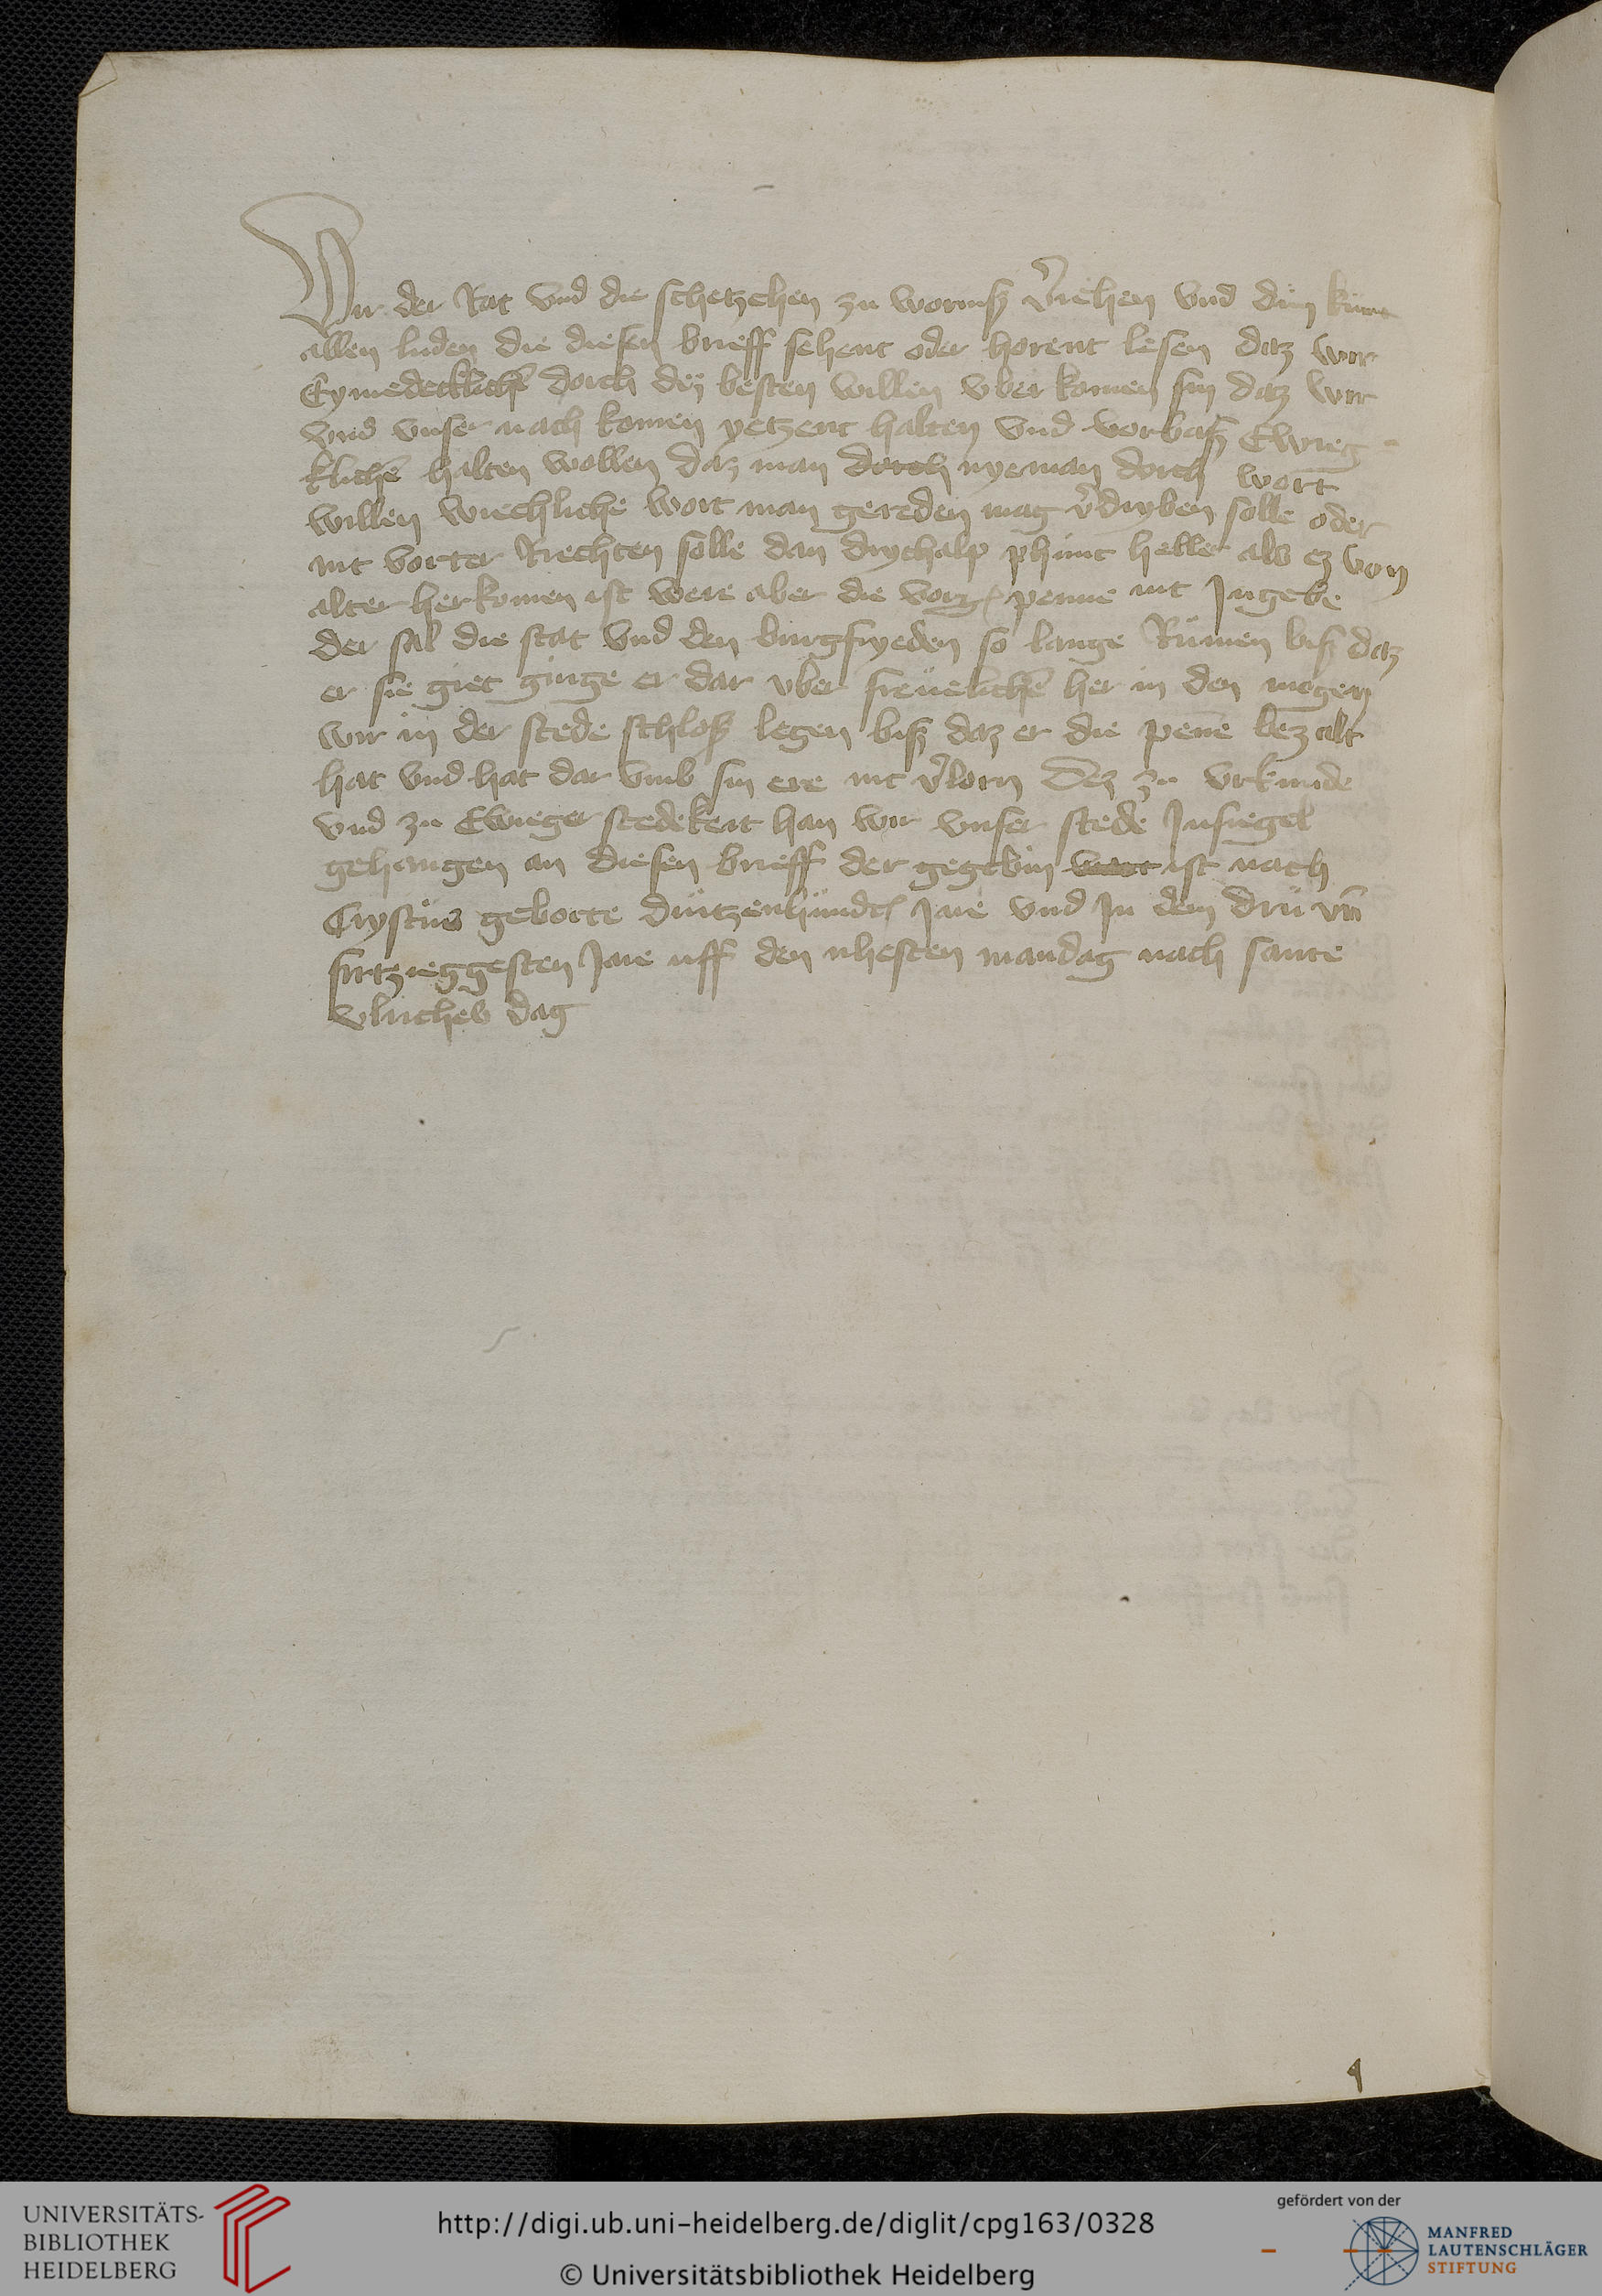 Wir der Rat vnd die schetzehen zu wormß v̄iehen vnd dün künt
allen luden die diesen brieff sehent oder horent lesen daz wir
Eymedecklichē dorch dez besten willen vber komen sin daz wir
vnd vnser nach komen yetzent halten vnd vorbaß Ewieg
klichē halten wollen daz man dorch nyeman dorch wort
willen wiechliche wort man gereden mag v̄dryben solle oder
nit vorter Rechten solle dan dryehalp phünt heller als ez von
alter herkomen ist were aber die vorg penne nit Ingebe
der sal die stat vnd den burgfryeden so lange Rümen biß daz
er sie giet ginge er dar vber freuelichē her in den mogen
wir in der stede schloß legen biß daz er die pene bezalt
hat vnd hat dar vmb sin ere nit v̄lorn Dez zu vrkunde
vnd zu Ewieger stedekeit han wir vnser stede Insiegel
gehangen an diesen brieff der gegebin wart ist nach
Crystus geborte drützenhündt Jare vnd In dem drü vn̄
firtzieggesten Jare uff den nhesten mandag nach sante
vlriches dag
q
UNIVERSITÄTS-
BIBLIOTHEK
HEIDELBERG
http://digi.ub.uni-heidelberg.de/diglit/cpg163/0328
© Universitätsbibliothek Heidelberg
gefördert von der
MANFRED
LAUTENSCHLÄGER
STIFTUNG